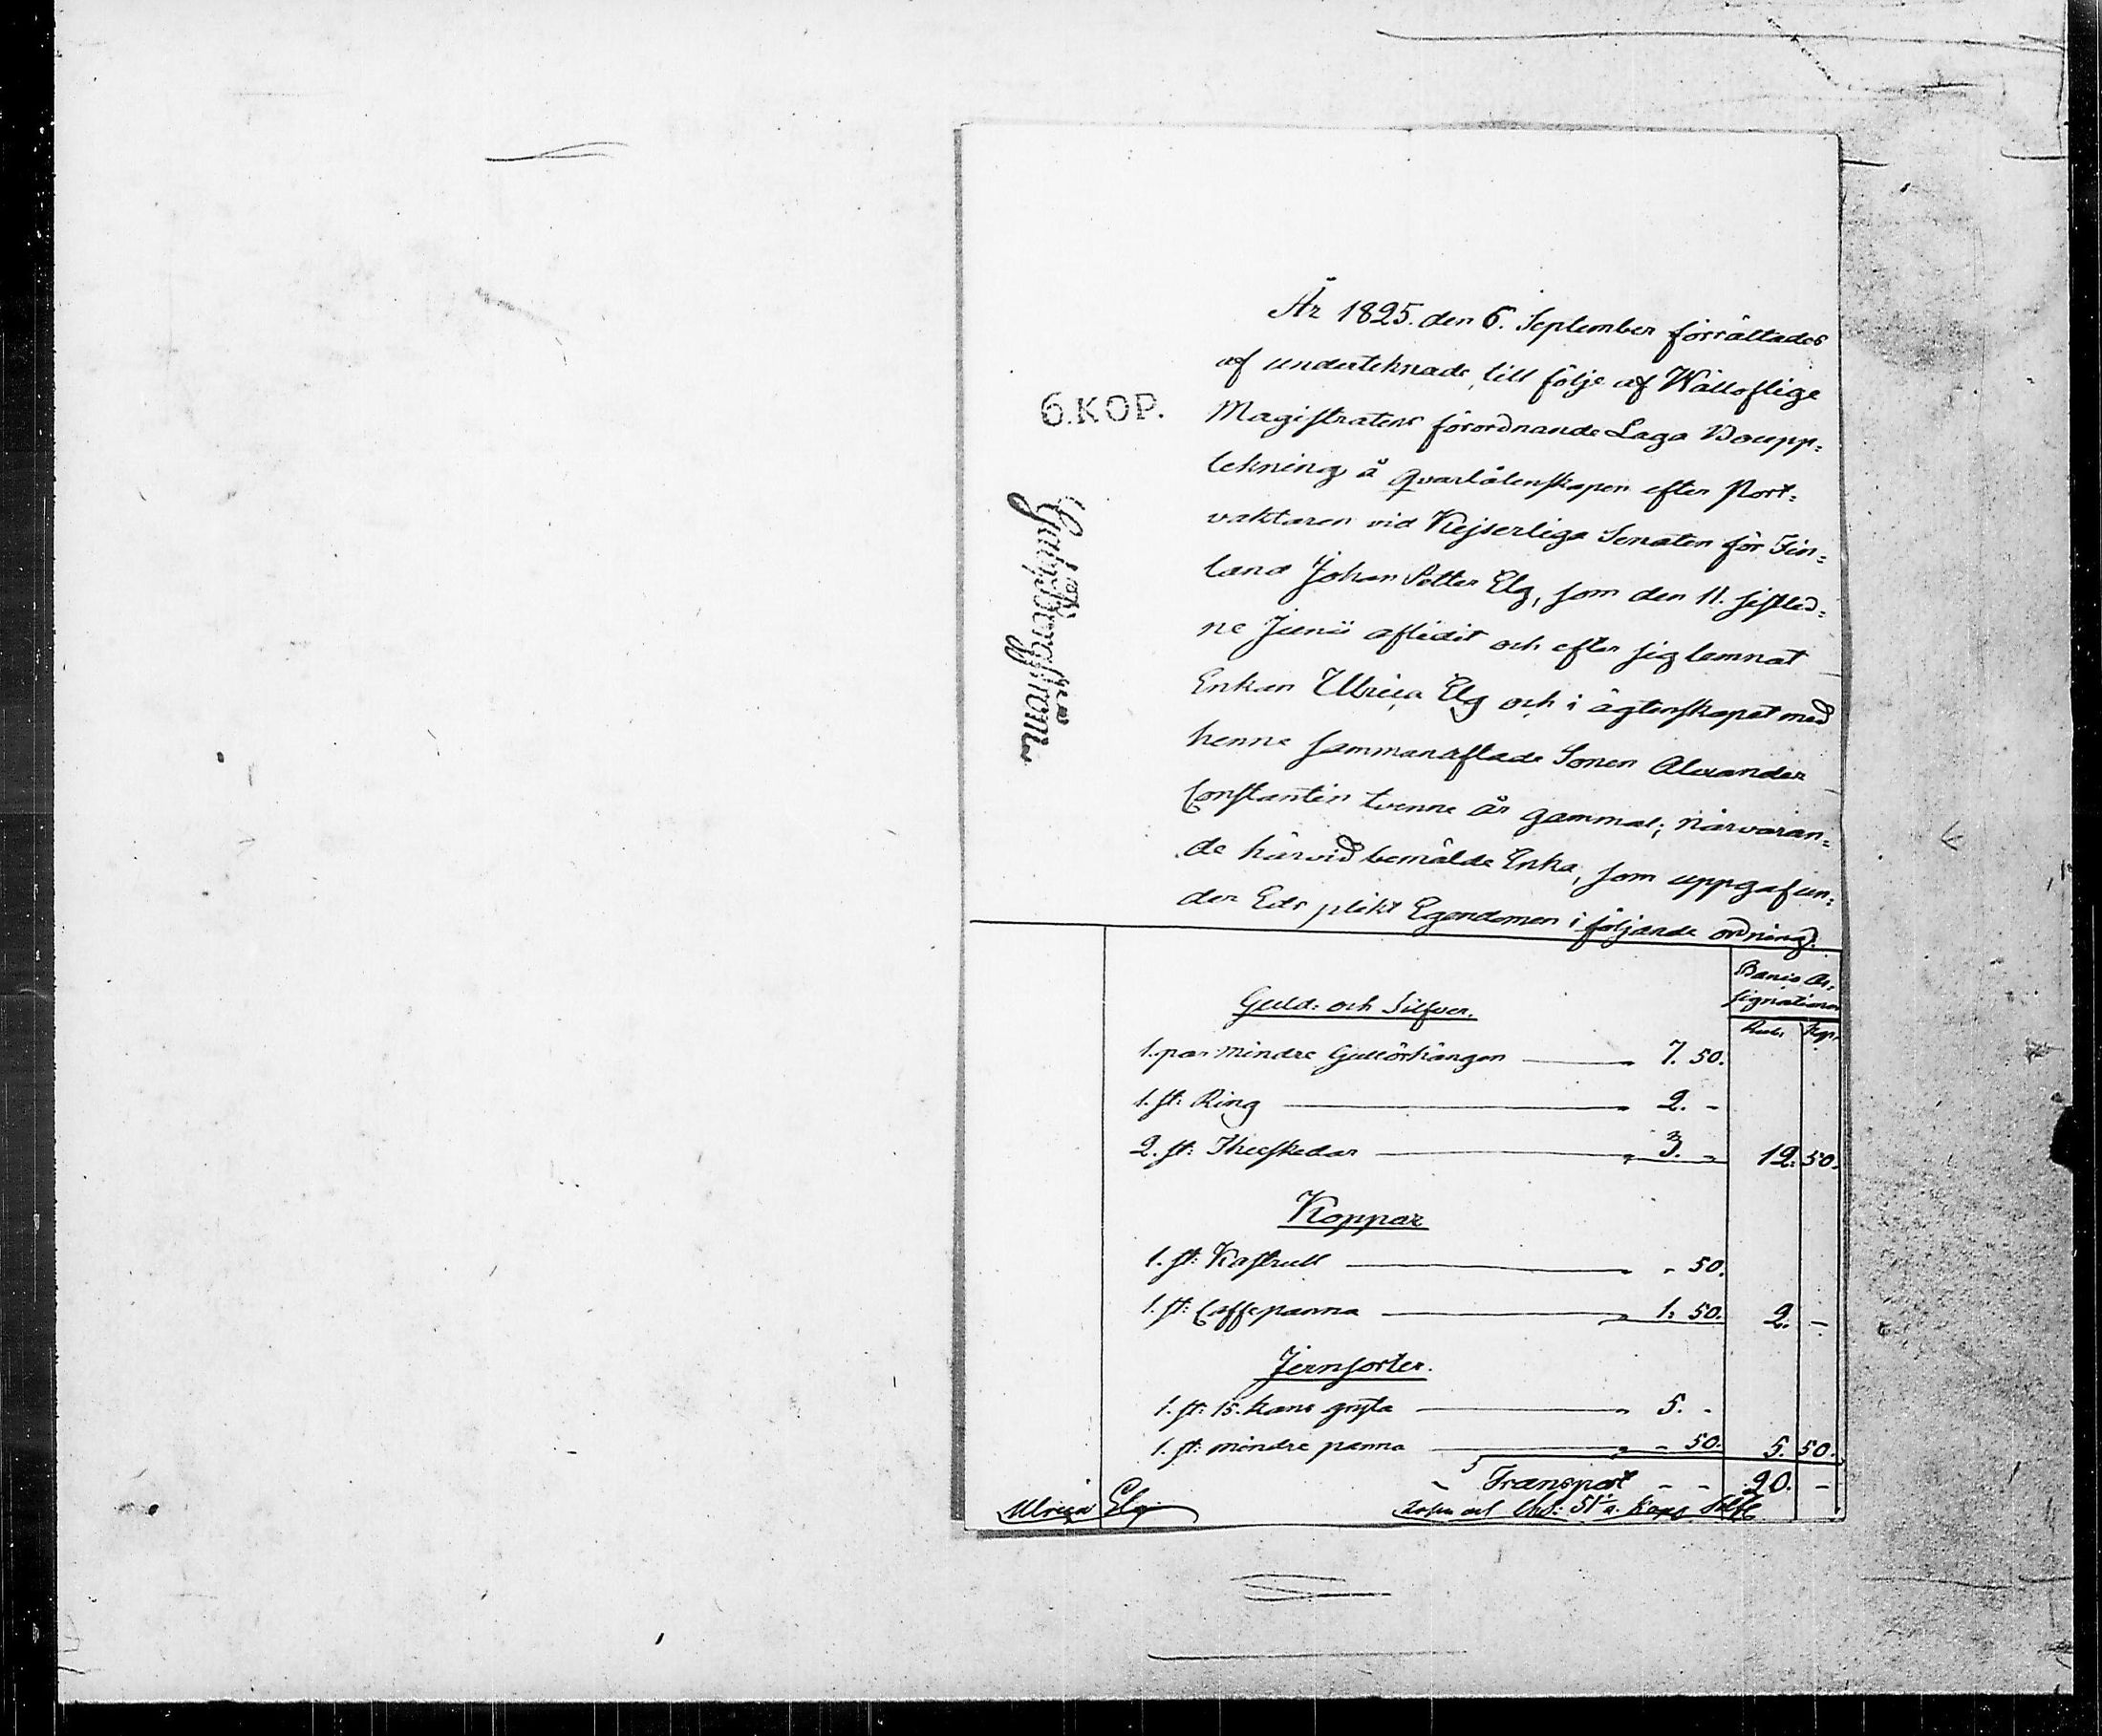 År 1825. den 6. September förrättades
af underteknade, till följe af Wälloflige
6.KOP.
Magistratens förordnande Laga Boupp=
tekning å Qvarlåtenskapen efter Port=
vaktaren vid Kejserliga Senaten för Fin=
land Johan Petter Elg, som den 11. sistled=
ne Junii aflidit och efter sig lemnat
Enkan Ulrica Elg och i ägtenskapet med
henne sammanaflade Sonen Alexander
Constantin tvenne år gammal; närvaran=
de härvid bemälde Enka, som uppgaf un=
der Eds plikt Egendomen i följande ordning.
Banco As=
signationer
Guld: och Silfver.
Rub. Kop.
1. par mindre Gullörhängen 7. 50.
1. st: Ring 2. -
2. st: Theeskedar 3. - 12. 50.
Koppar
1. st: Kastrull - 50.
1. st: Caffepanna 1. 50. 2. -
Jernsorter.
1. st: 15. kans gryta 5. -
1. st: mindre panna - 50. 5. 50.
Transport - - 20. -
Ulrica Elg